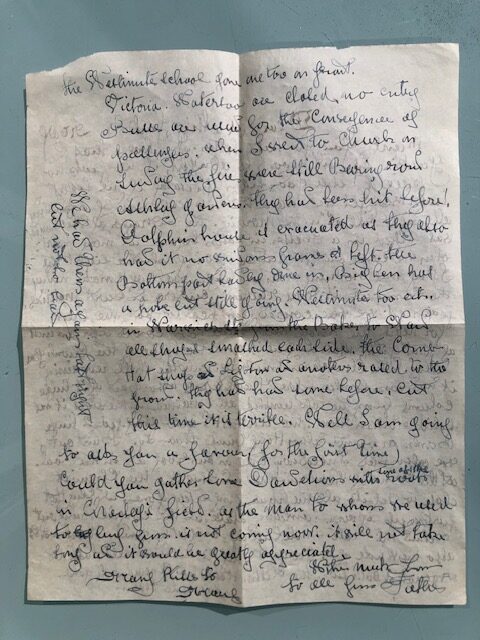 the Westminster School gone one too on front.
Victoria. Waterloo are closed, no entry
Buses are used for the Conveyance of
passengers. when I went to Church on
Sunday the fires were still Burning
they had been hit before.
Dolphin house is evacuated as they also
had it no windows frames left. the
Bottom part badly done in. Big Ben has
a hole but still going. Westminster too etc.
in Warwick St from the Baker to
all shops smashed each side. the Corner
Hat shop others razed to the
ground. they had had some before. but
this time it is terrible. Well I am going
to ask you a favour (for the first time)
Could you gather some Dandelions with roots
line of the
in Charley's field. as the man to whom we used
to is not coming now. it will not take
long and it would be greatly appreciated
With much love
to all from Father
We had them again last night
but not too bad